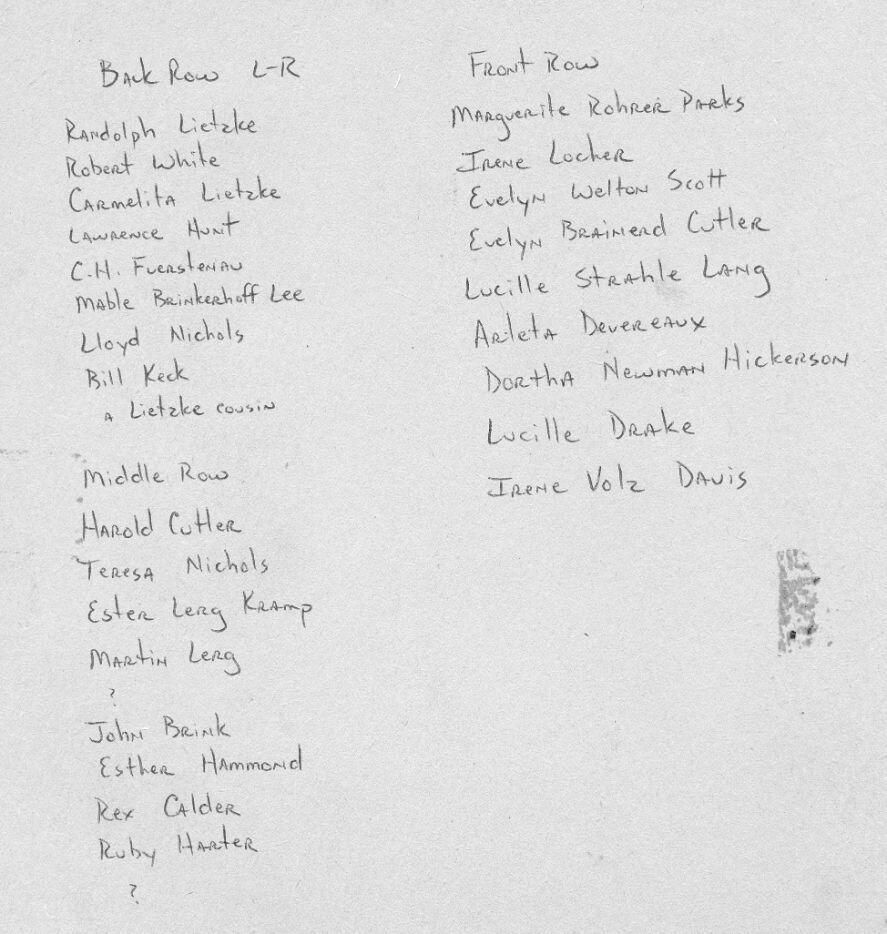 Back Row L-R
Randolph Lietzke
Robert White
Carmelita Lietzke
Lawrence Hunt
C.H. Fuerstenau
Mable Brinkerhoff Lee
Lloyd Nichols
Bill Keck
A Lietzke cousin
Middle Row
Harold Cutler
Teresa Nichols
Ester Lerg Kramp
Martin Lerg
?
John Brink
Esther Hammond
Rex Calder
Ruby Harter
?
Front Row
Marguerite Rohrer Parks
Irene Locher
Evelyn Welton Scott
Evelyn Brainerd Cutler
Lucille Strahle Lang
Arleta Devereaux
Dortha Newman Hickerson
Lucille Drake
Irene Volz Davis